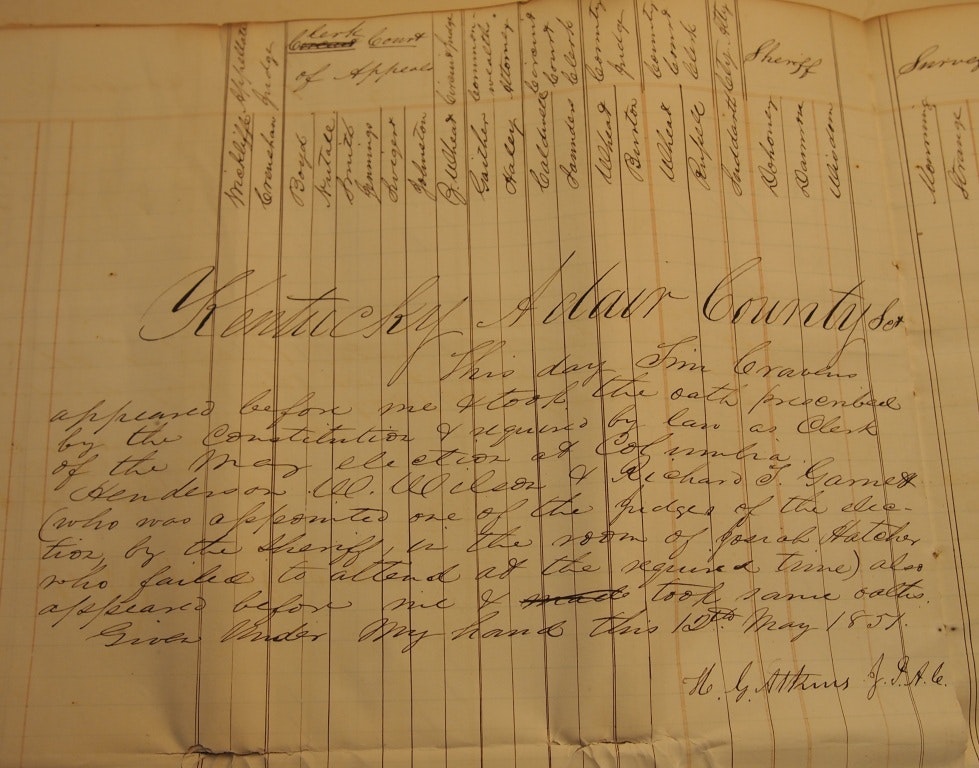 Appellate
Judge
Clerk
Circuit Court
of Appeals
Circuit Judge
Common-
wealths
Attorney
Circuit
Court
Clerk
County
Judge
County
Court
Clerk
Sheriff
Wickliffe
Crenshaw
Boyd
Smith
Jennings
Johnston
Z. Wheat
Gaither
Haley
Caldwell
Saunders
Wheat
Burton
Wheat
Russell
Suddarth
Dohoney
Damron
Wisdom
Strange
Kentucky Adair County Sct
This day Tim Cravens
appeared before me & took the oath prescribed
by the Constitution & required by law as Clerk
of the May election at Columbia
Henderson W. Wilson & Richard T. Garnett
(who was appointed one of the Judges of the elec-
tion by the Sheriff, in the room of Josiah Hatcher
who failed to attend at the required time) also
appeared before me & made took same oaths.
Given Under My hand this 12th May 1851.
H. G. Atkins J. P. A. C.